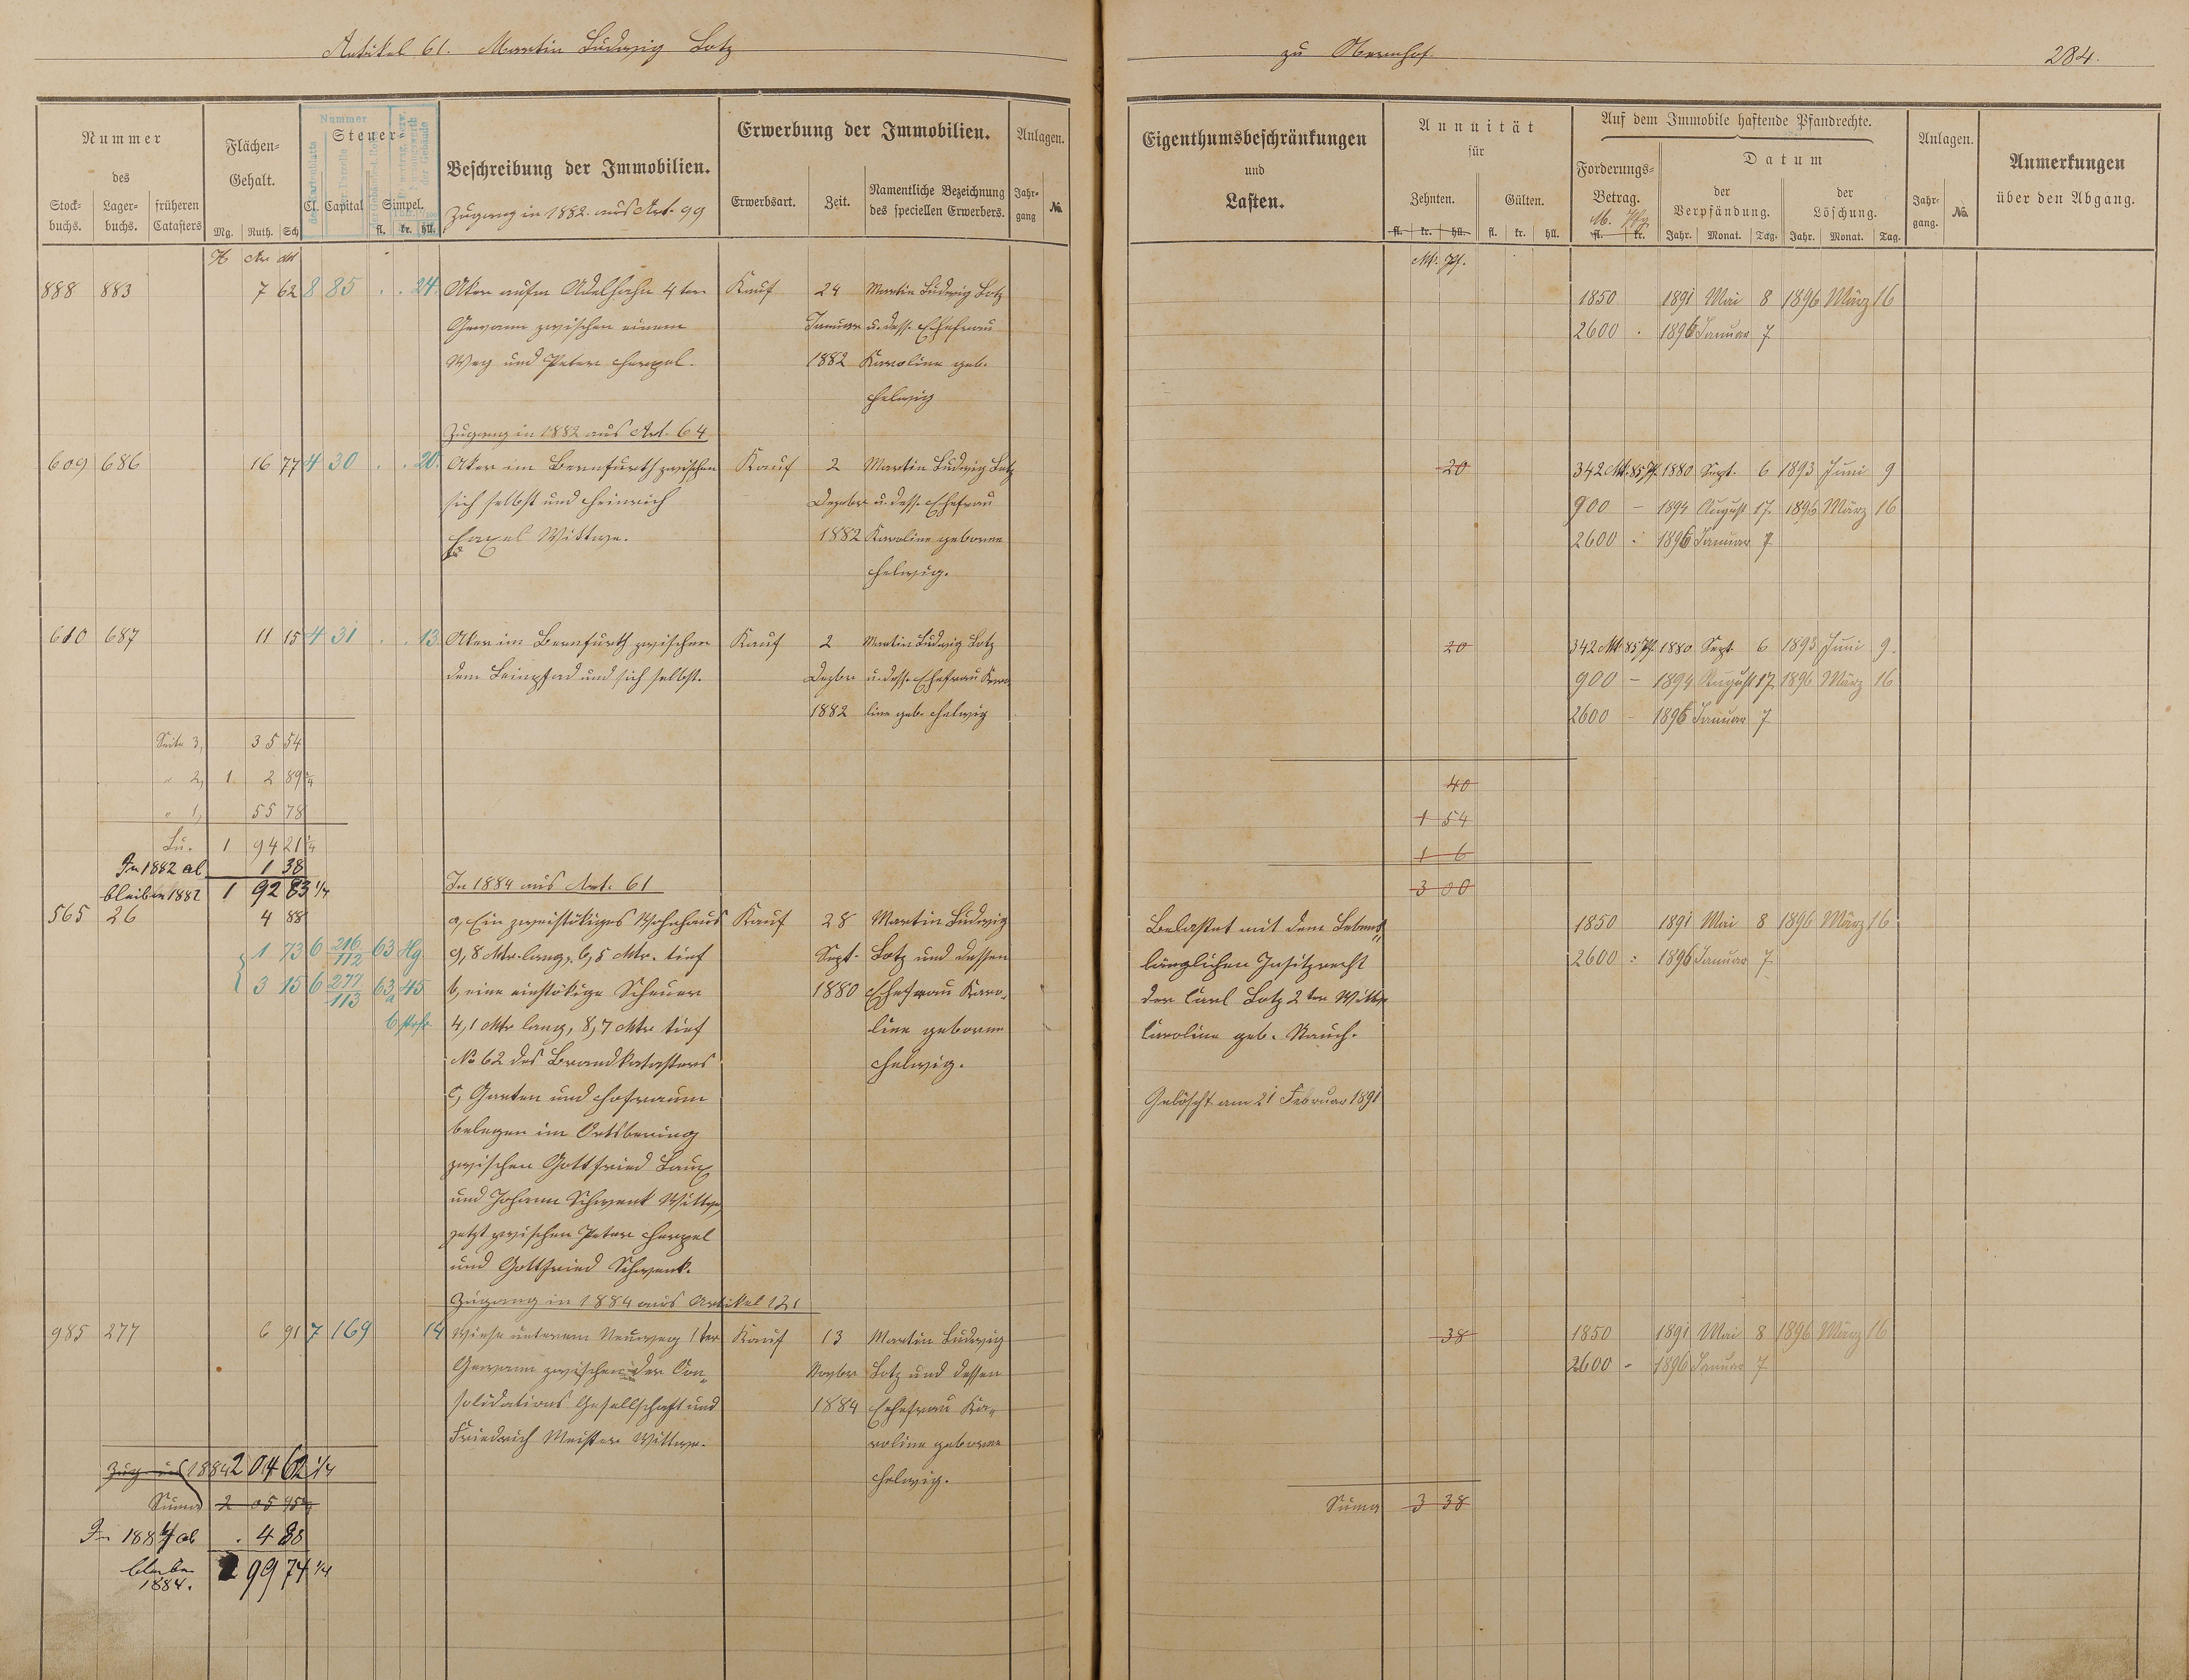 Artikel 61. Martin Ludwig Lotz
zu Obernhof.
284.
Nummer
des
Stock-
buchs.
Lager-
buchs.
früheren
Catasters
Flächen-
Gehalt.
Mg. Ruth. Sch
Steuer-
Cl. Capital Simpel.
fl. kr. hll.
Nummer
Beschreibung der Immobilien.
Zugang in 1882 aus Art. 99
Erwerbung der Immobilien.
Erwerbsart. Zeit. Namentliche Bezeichnung
des speciellen Erwerbers.
Anlagen.
Jahr-
gang
No.
Eigenthumsbeschränkungen
und
Lasten.
Annuität
für
Zehnten. Gülten.
fl. kr. hll. fl. kr. hll.
Mk. Pf.
Auf dem Immobile haftende Pfandrechte.
Forderungs-
Betrag.
M. Pfg
fl. kr.
Datum
der
Verpfändung.
der
Löschung.
Jahr. Monat. Tag. Jahr. Monat. Tag.
Anlagen.
Jahr-
gang.
No.
Anmerkungen
über den Abgang.
888 883 7 62 8 85 . . 24. Aker aufm Adelhahn 4ter Kauf 24 Martin Ludwig Lotz
Gewann zwischen einem Januar u. dess. Ehefrau
Weg und Peter Herpel. 1882 Karoline geb.
Helwig
1850 1891 Mai 8 1896 März 16
2600 . 1896 Januar 7
Zugang in 1882 aus Art. 64
609 686 16 77 4 30 . . 20. Aker im Bernfurth zwischen Kauf 2 Martin Ludwig Lotz
sich selbst und Heinrich Dezbr u. dess. Ehefrau
Wittwe. 1882 Karoline geborne
Helwig.
20 342 Mk. 85 Pf. 1880 Sept. 6 1893 Juni 9
900 – 1894 August 17. 1896 März 16
2600 : 1896 Januar 7
610 687 11 15 4 31 . . 13. Aker im Bernfurth zwischen Kauf 2 Martin Ludwig Lotz
dem Leinpfad und sich selbst. Dezbr u. dess. Ehefrau Karo
1882 line geb. Helwig
20 342 Mk 85 Pf. 1880 Sept. 6 1893 Juni 9.
900 – 1894 August 17 1896 März 16
2600 – 1896 Januar 7
Seite 3, 35 54
" 2, 1 2 89 1/4
" 1, 55 78
Su. 1 94 21 1/4
In 1882 ab 1 38
bleiben 1882 1 92 83 1/4
40
1 54
1 6
3 00
In 1884 aus Art. 61
565 26 4 88 a, Ein zweistökiges Wohnhaus Kauf 28 Martin Ludwig
1 73 6 216/112 63 Hg 9,8 Mtr. lang, 6,5 Mtr. tief Sept. Lotz und dessen
3 15 6 277/113 63 a 45 b, eine einstökige Scheuer 1880 Ehefrau Karo-
4,1 Mtr lang, 8,7 Mtr tief line geborne
No 62 des Brandkatasters Helwig.
c, Garten und Hofraum
belegen im Ortsbering
zwischen Gottfried Laux
und Johann Schwenk Wittwe
jetzt zwischen Peter Herpel
und Gottfried Schwenk.
Belastet mit dem Lebens-
länglichen Insitzrecht
der Carl Lotz 2ter Wittwe
Caroline geb. Rauch.
Gelöscht am 21 Februar 1891
1850 1891 Mai 8 1896 März 16
2600 : 1896 Januar 7
Zugang in 1884 aus Artikel 121
985 277 6 91 7 169 14 Wiese unterem Neuweg 1ter Kauf 13 Martin Ludwig
Gewann zwischen der Con- Novbr Lotz und dessen
solidations Gesellschaft und 1884 Ehefrau Ka-
Friedrich Meister Wittwe. roline geborne
Helwig.
38 1850 1891 Mai 8 1896 März 16
2600 – 1896 Januar 7
1884 2 04 62 1/4
Suma 2 05
In 1884 ab . 4 88
bleiben 99 74 1/4
1884.
Suma 3 38